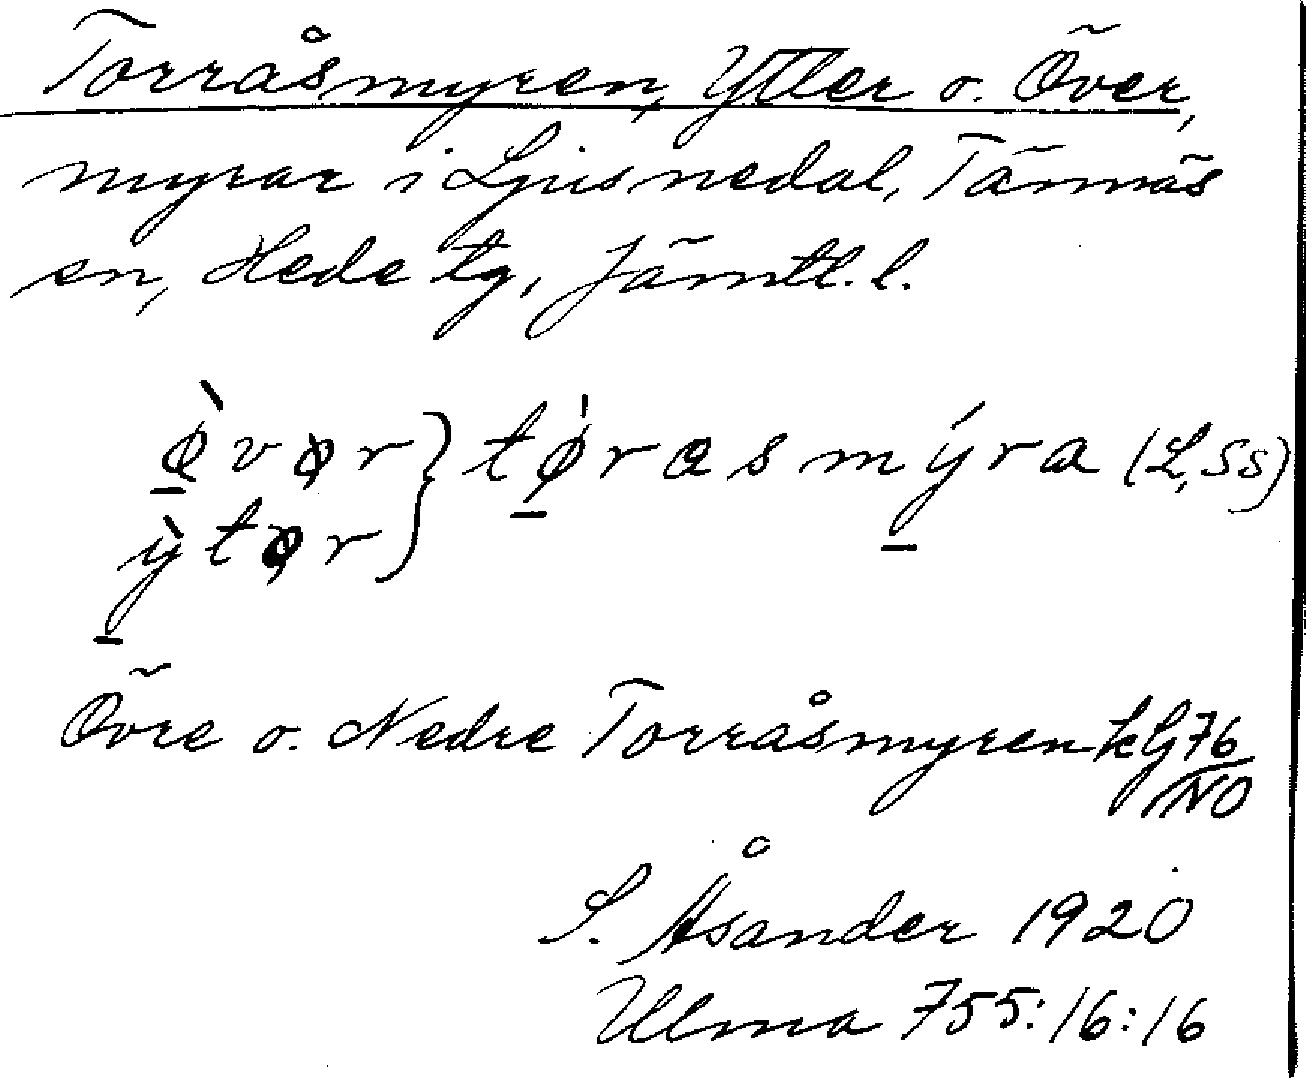 Torråsmyren, Ytter o. Över,
myrar i Ljusnedal, Tännäs
sn, Hede tg, Jämtl. l.
ø̀vər } tø̍rasmýra (L, Ss)
ỳtər
Övre o. Nedre Torråsmyren kbl 76
NO
S. Åsander 1920
Ulma 755:16:16